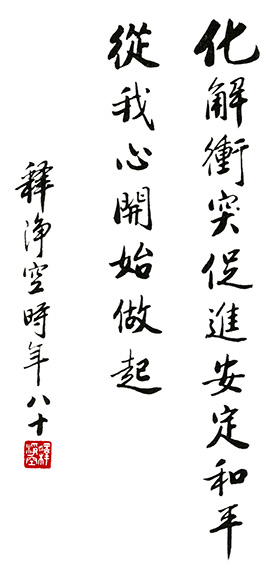 化解衝突促進安定和平
從我心開始做起
釋淨空時年八十